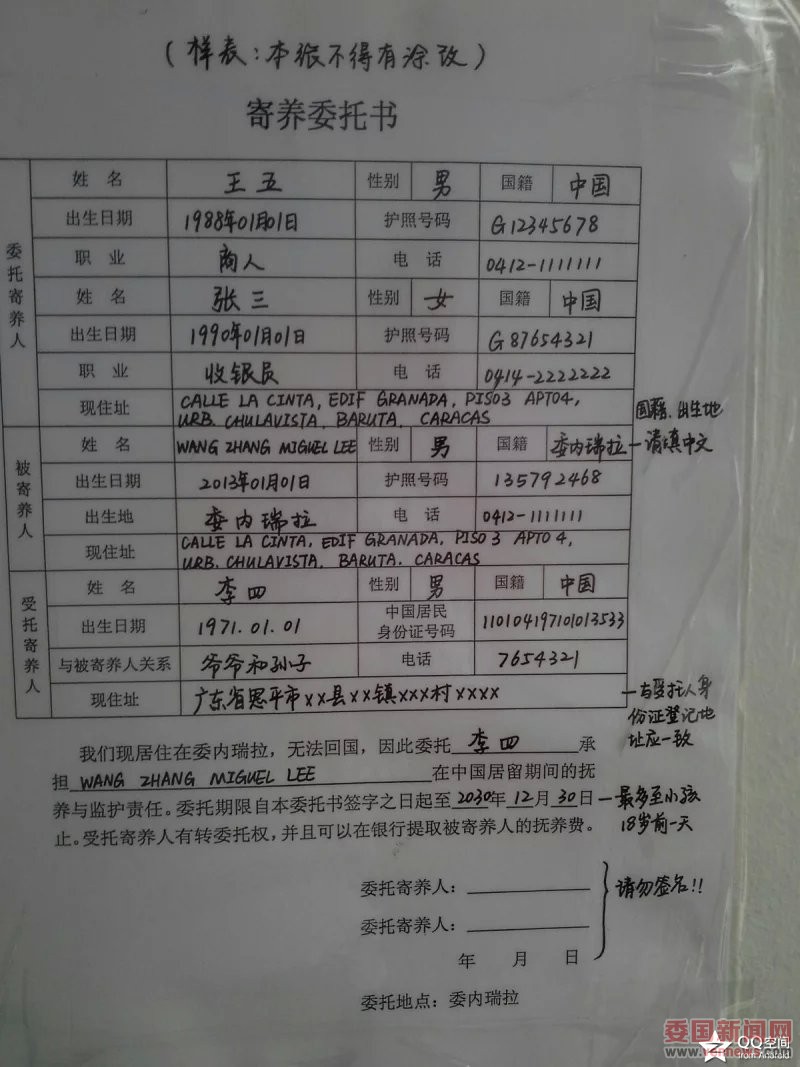 （样表：本张不得有涂改）
寄养委托书
委托寄养人
姓 名 王五 性别 男 国籍 中国
出生日期 1988年01月01日 护照号码 G12345678
职 业 商人 电 话 0412-1111111
姓 名 张三 性别 女 国籍 中国
出生日期 1990年01月01日 护照号码 G87654321
职 业 收银员 电 话 0414-2222222
现住址 CALLE LA CINTA, EDIF GRANADA, PISO3 APTO4,
URB. CHULAVISTA, BARUTA, CARACAS
国籍、出生地
一请填中文
被寄养人
姓 名 WANG ZHANG MIGUEL LEE 性别 男 国籍 委内瑞拉
出生日期 2013年01月01日 护照号码 135792468
出生地 委内瑞拉 电 话 0412-1111111
现住址 CALLE LA CINTA, EDIF GRANADA, PISO 3 APTO 4,
URB. CHULAVISTA, BARUTA, CARACAS
受托寄养人
姓 名 李四 性别 男 国籍 中国
出生日期 1971.01.01 中国居民身份证号码 110104197101013533
与被寄养人关系 爷爷和孙子 电话 7654321
现住址 广东省恩平市××县××镇×××村××××
一与受托人身
份证登记地
址应一致
我们现居住在委内瑞拉，无法回国，因此委托 李四 承
担 WANG ZHANG MIGUEL LEE 在中国居留期间的抚
养与监护责任。委托期限自本委托书签字之日起至2030年12月30日
止。受托寄养人有转委托权，并且可以在银行提取被寄养人的抚养费。
一最多至小孩
18岁前一天
委托寄养人：
委托寄养人：
请勿签名!!
年 月 日
委托地点：委内瑞拉
委国新闻网
www.vennews.com
QQ空间
from Android